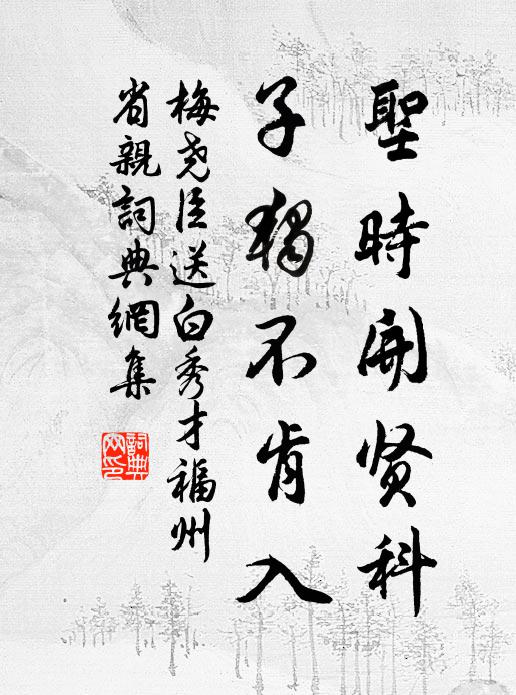 聖時開贤科
子獨不肯入
梅尧臣送白秀才福州
省親詞典網集
詞典网印